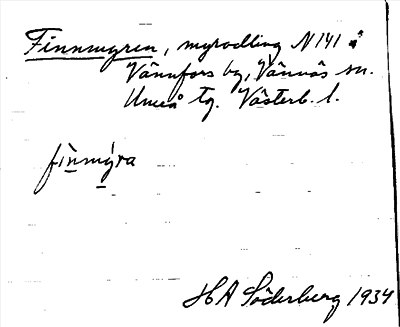 Finnmyren, myrodling N 141 å
Vännfors by, Vännäs sn.
Umeå tg. Västerb. l.
finmyra
HA Söderberg 1934